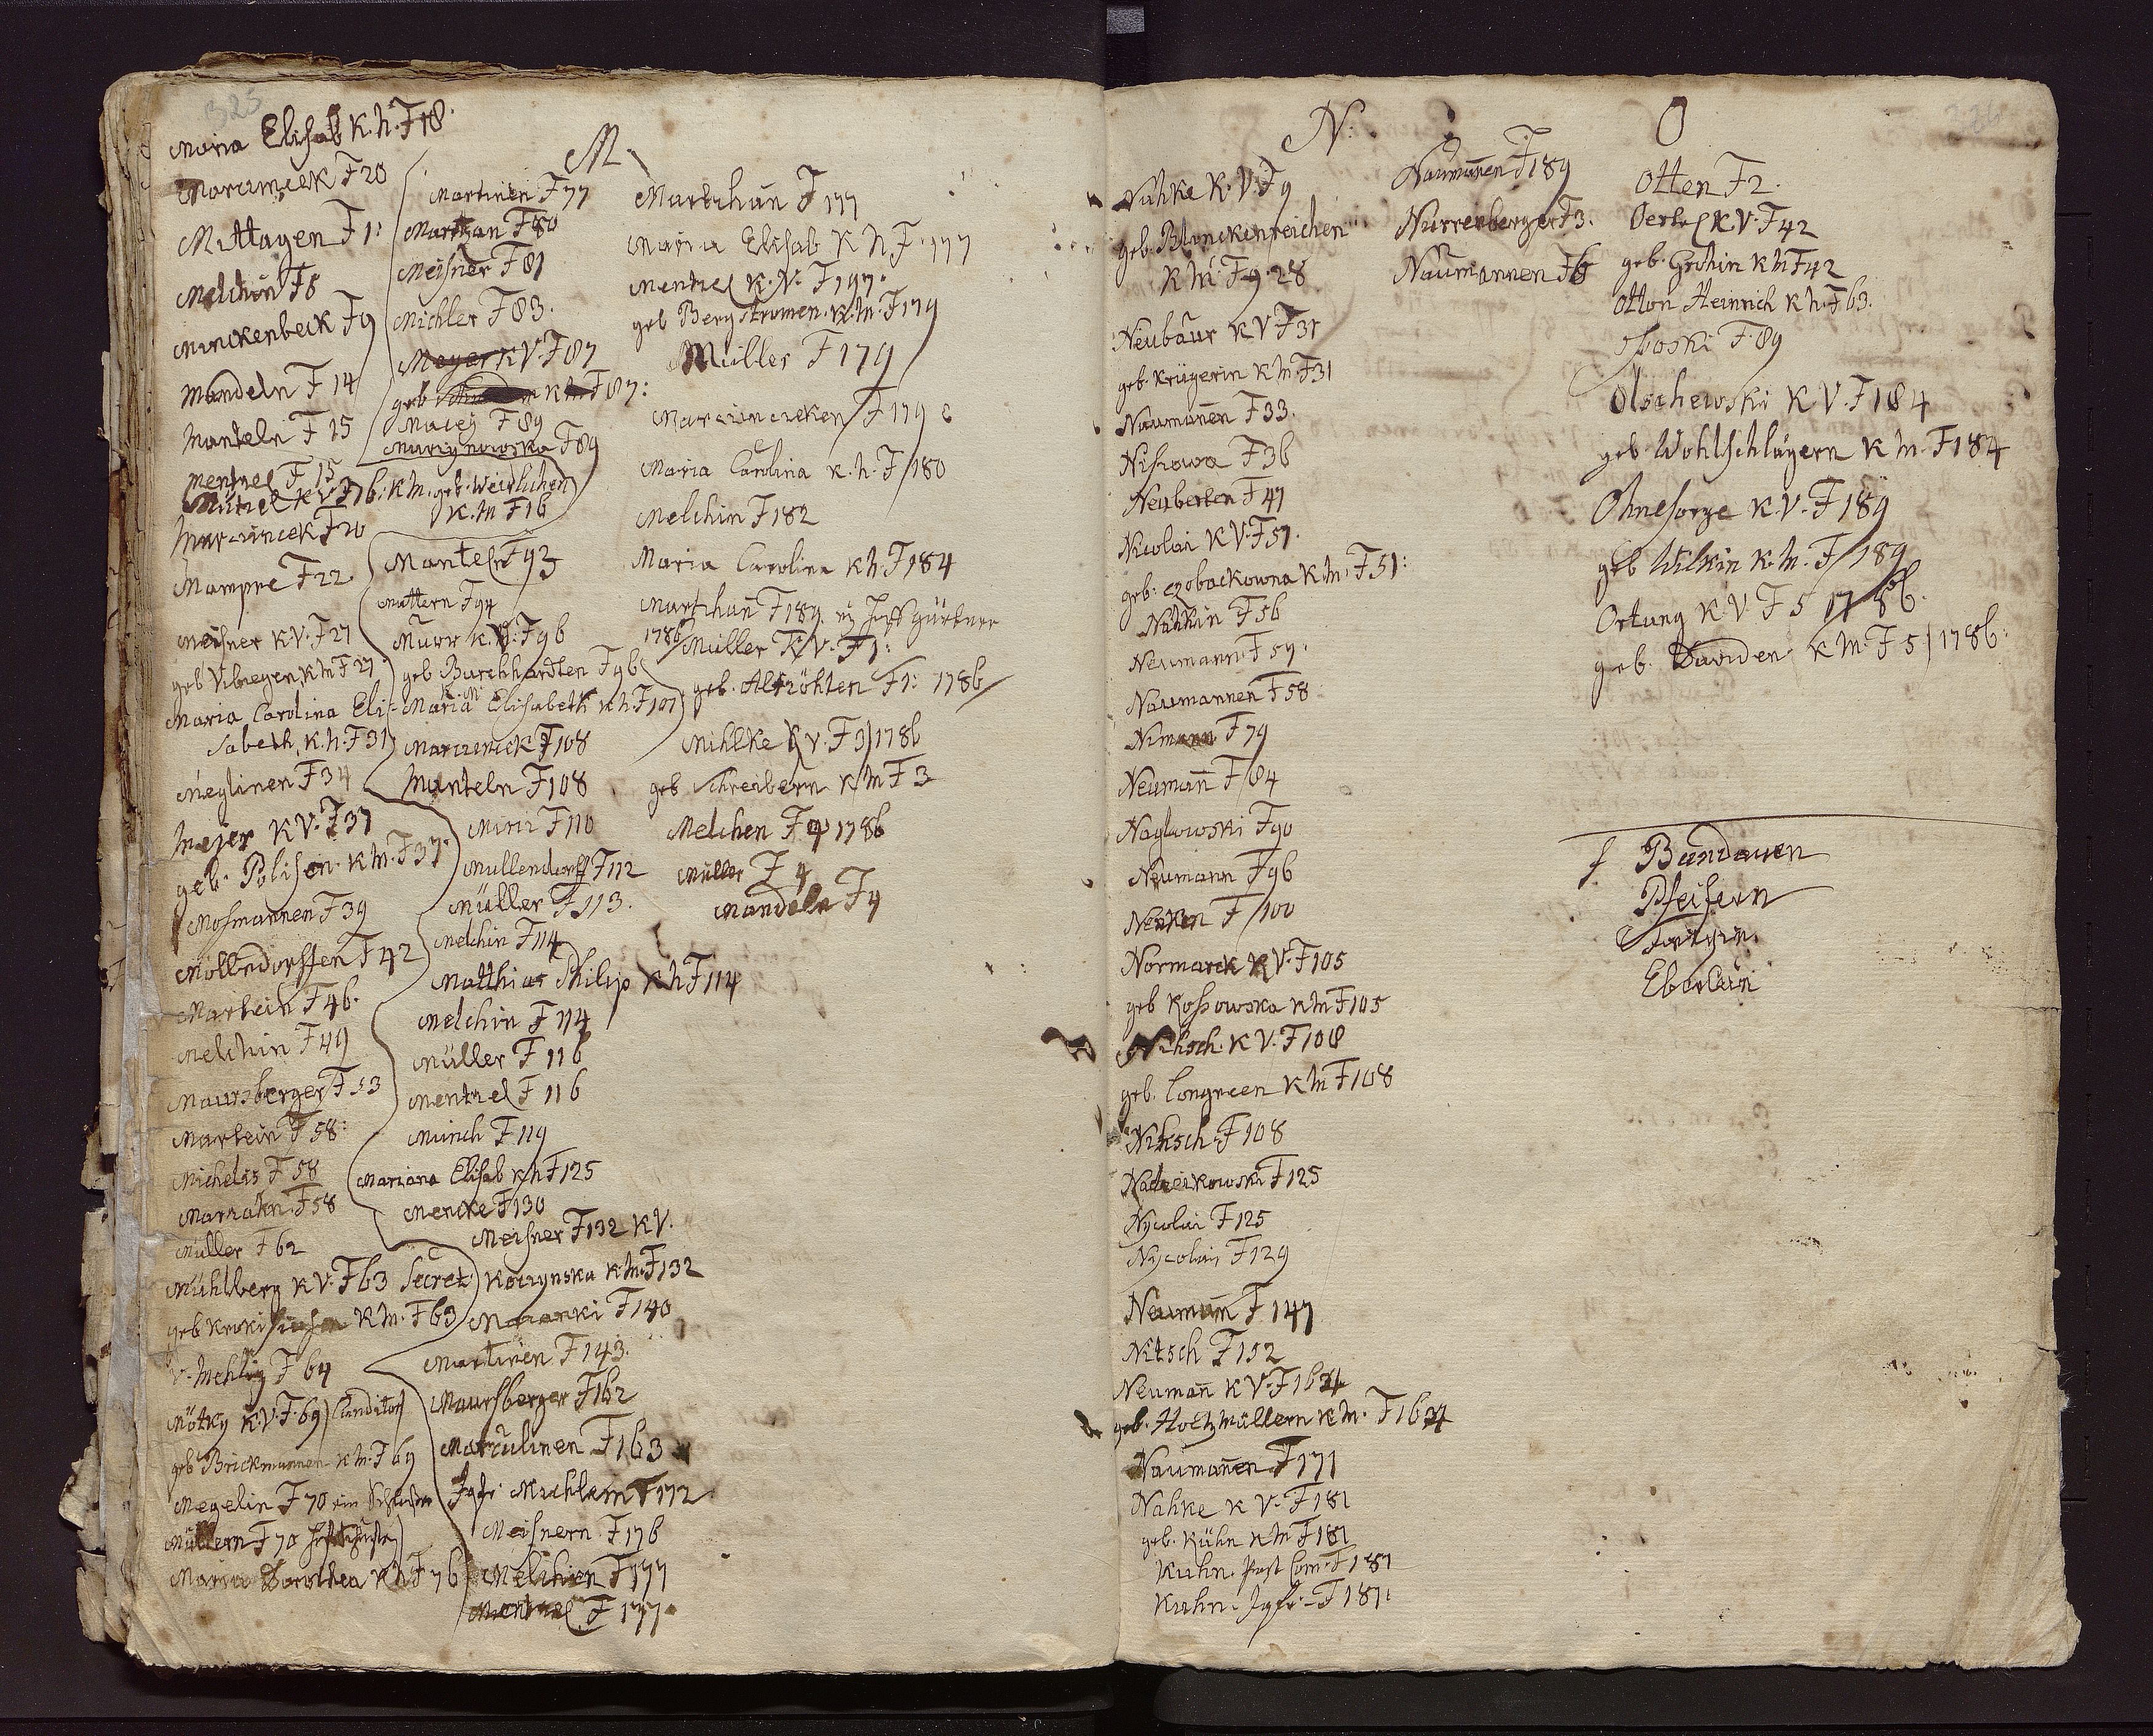 325
Maria Elisab K. h. F 18.
M.
Marcincek F 20
Mittagen F 1:
Melchin F 8
Minckenbeck F 9
Mandeln F 14
Manteln F 15
Mentzel F 15
Mützel K V. F 16: K M. geb. Weidlichen
K. M F 16
Marcincek F 20
Mampre F 22
Meisner K. V. F 27
geb Vibiegen K M F 27.
Maria Carolina Eli-
sabeth, K. h. F 31
Meglinen F 34
Mejer K V. F 37
geb. Polisen. K M. F 37.
Mosmannen F 39
Möllendorffen F 42
Martein F 46.
Melchin F 49
Maursberger F 53
Martein F 58:
Michelis F 58
Marzahn F 58
Müller F 62
Mühlberg K V. F 63 Secret.
geb K M. F 63
V. Mehlig F 64
Mötky K. V. F. 69) Conditor
geb Brickmannen K M. F 69
Megelin F 70 ein
Müllern F 70
Maria Dorothea K h F 76
Martinen F 77
Martzan F 80
Meisner F 81
Michler F 83.
Meyer K V. F 87
geb K M F 87:
Macey F 89
Marcynowska F 89
Manteln F 93
Muttern F 94
Murr K. V. F 96
geb Burchhardten F 96
K M
Maria Elisabeth K h F 107
Marcincick F 108
Manteln F 108
Minz F 110
Mullendorff F 112
Müller F 113.
Melchin F 114
Matthias Philip K h F 114
Melchin F 114
Müller F 116
Mentzel F 116
Münch F 119
Mariana Elisab K h F 125
Mencke F 130
Meisner F 132 K V.
Koczynska K M. F 132
Maranki F 140
Martinen F 143.
Maursberger F 162
Matzulinen F 163
Jgfr. Muchlern F 172
Meisnern F 176
Melchien F 177
Mentzel F 177.
Martzhan F 177
Maria Elisab K h F. 177
Mentzel K. V. F 197.
geb Bergstromen. K. M. F 179
Müller F 179
Marcinczeken F 179
Maria Carolina K. h. F 180
Melchin F 182
Maria Carolina K h. F 184
Martzhan F 189. ein Hoffgärtner
1786 Müller K V. F 1:
geb. Altröhten F 1: 1786
Mihlke K V. F 3) 1786
geb Schreibern K M F 3
Melchen F 4 1786
Müller F 4
Mandeln F 4
N.
Nahke K. V. F 9
geb. Blanckenreichen
K M. F 9. 28.
Neubaur K V F 31
geb. Krügerin K M. F 31
Naumannen F 33.
Nisowa F 36
Neuberten F 47
Nicolai K V. F 51.
geb. czobackowna K M. F 51:
Nahkin F 56
Neumann F 57.
Naumannen F 58
Nimann F 79
Neumann F 84
Naglowski F 90
Neumann F 96
Nenken F 100
Normarck K V. F 105
geb Kossowska K M F 105
Nihsch. K V. F 108
geb. Longreen K M F 108
Nihsch. F 108
Nadreikowski F 125
Nycolai F 125
Nycolai F 129
Neumann F 147
Nitsch F 152
Neumann K V. F 164
geb. Holtzmüllern K M. F 164
Naumannen F 171
Nahke K V. F 181
geb. Kühn K M F 181
Kuhn. Post Com. F 181
Kuhn. Jgfr. F 181.
Naumannen F 189
Nurrenberger F 3.
Naumannen F 6
O
Otten F 2.
Oertel K. V. F 42
geb. Grehin K M F 42
Otton Heinrich K h. F 63.
F 89
Olschewski K V. F 184
geb. Wohlschlägern K M. F 184
Ohnesorge K. V. F 189
geb Wilkin K. M. F 189
Ortung K V. F 5 1786.
geb. K M F 5) 1786.
f Bandauen
Pfeifern
Eberlein